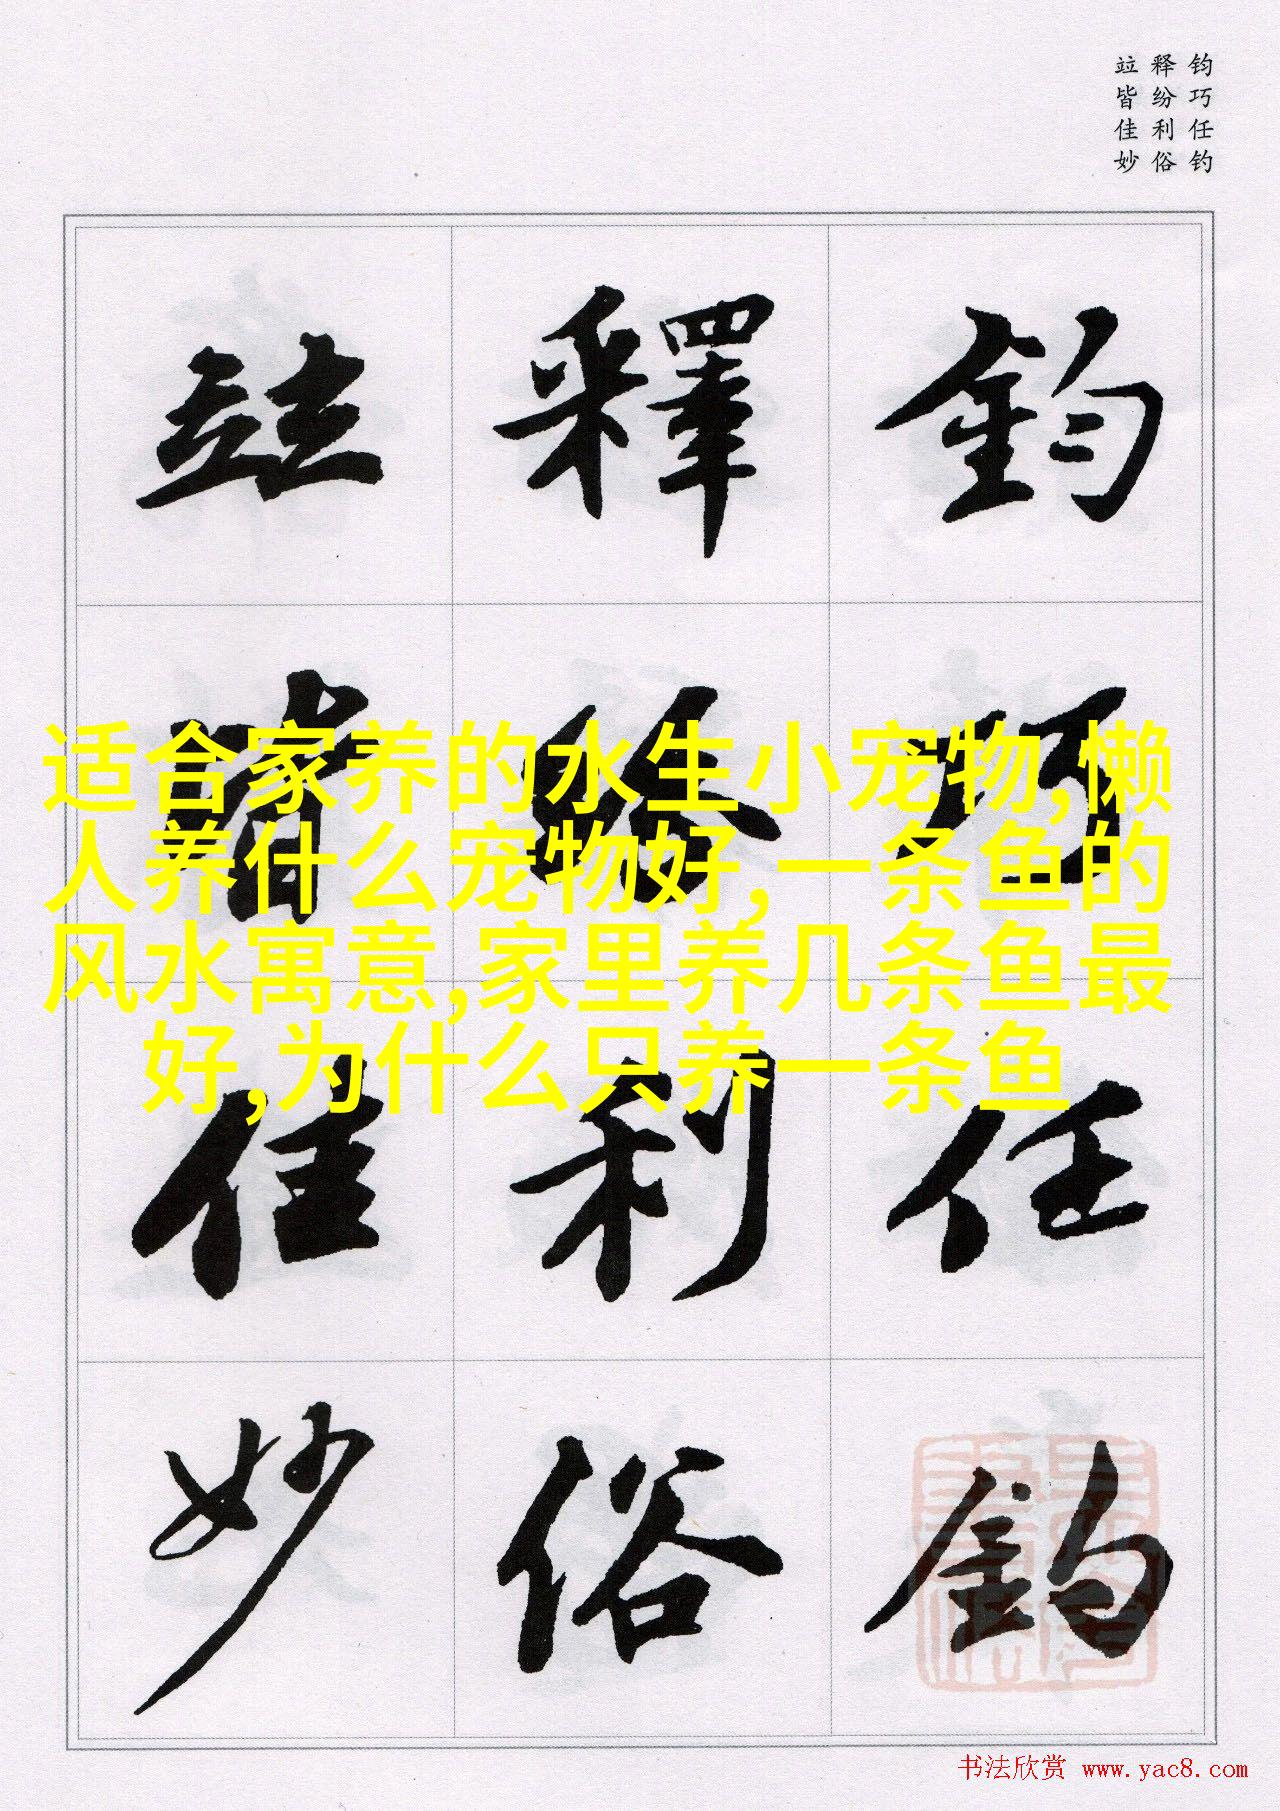 钧巧任钓
释纷利俗
竝皆佳妙
鈞巧任釣
釋紛利俗
竝皆佳妙
适合家养的水生小宠物,懒
人养什么宠物好,一条鱼的
风水寓意,家里养几条鱼最
好,为什么只养一条鱼
书法欣赏 www.yac8.com